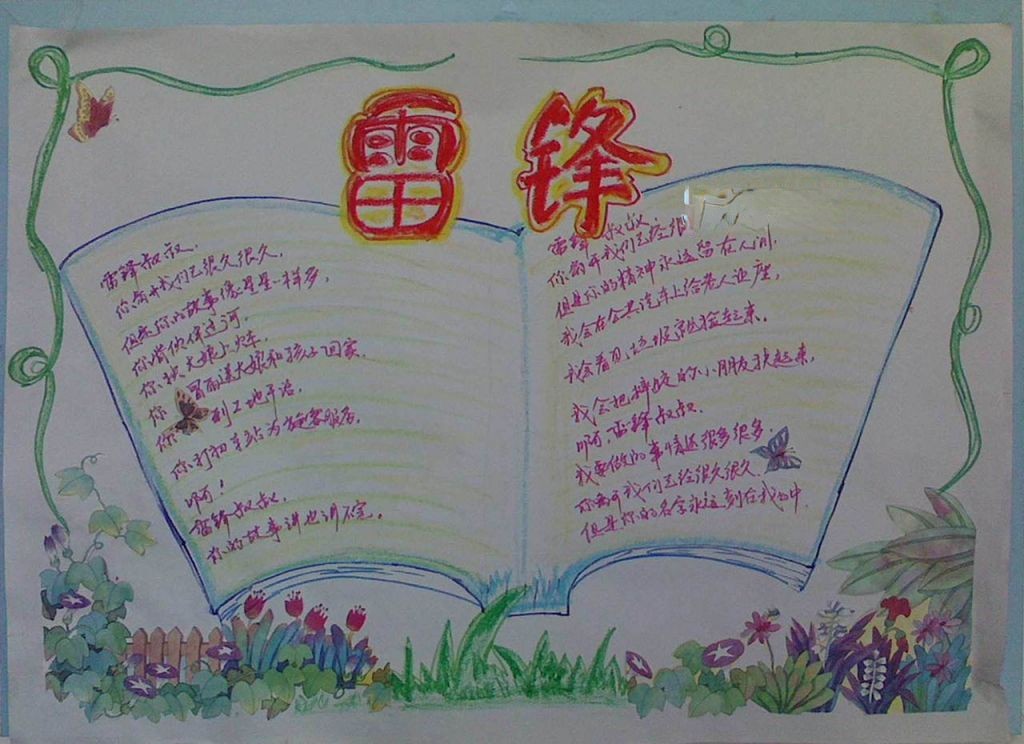 雷锋
雷锋叔叔,
你离开我们已很久很久,
但是你的故事像星星一样多,
你背伙伴过河,
你扶大娘上火车,
你冒雨送大娘和孩子回家,
你到工地干活,
你利用车站为旅客服务,
啊!
雷锋叔叔,
你的故事讲也讲不完。
雷锋叔叔,
你离开我们已经很
但是你的精神永远留在人间,
我会在公共汽车上给老人让座,
我会看见垃圾就捡起来,
我会把摔跤的小朋友扶起来,
啊,雷锋叔叔,
我要做的事情还很多很多,
你离开我们已经很久很久,
但是你的名字永远刻在我心中